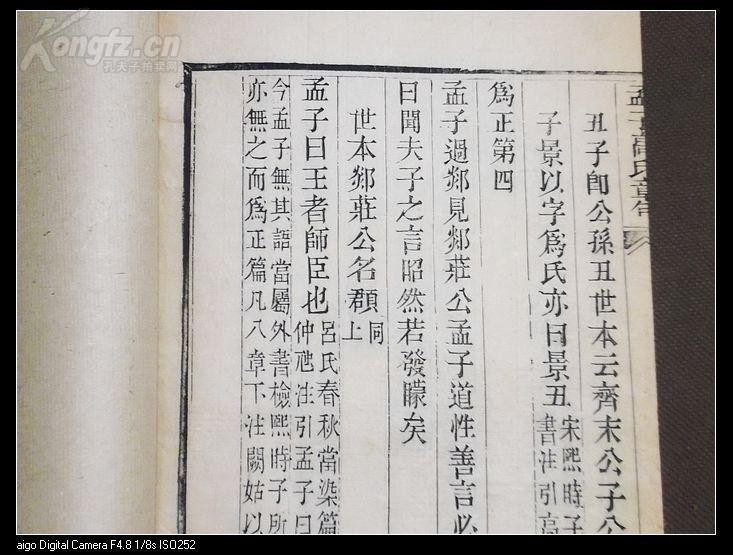 Kongfz.cn
孔夫子拍卖网
孟子高氏章句
丑子卽公孫丑世本云齊末公子公
子景以字爲氏亦曰景丑
宋熙時子
書注引高
爲正第四
孟子過鄒見鄒莊公孟子道性善言必
曰聞夫子之言昭然若發矇矣
世本鄒莊公名
同
上
孟子曰王者師臣也
呂氏春秋當染篇
仲虺注引孟子曰
今孟子無其語當屬外書檢熙時子所
亦無之而爲正篇凡八章下注闕姑以
aigo Digital Camera F4.8 1/8s ISO252